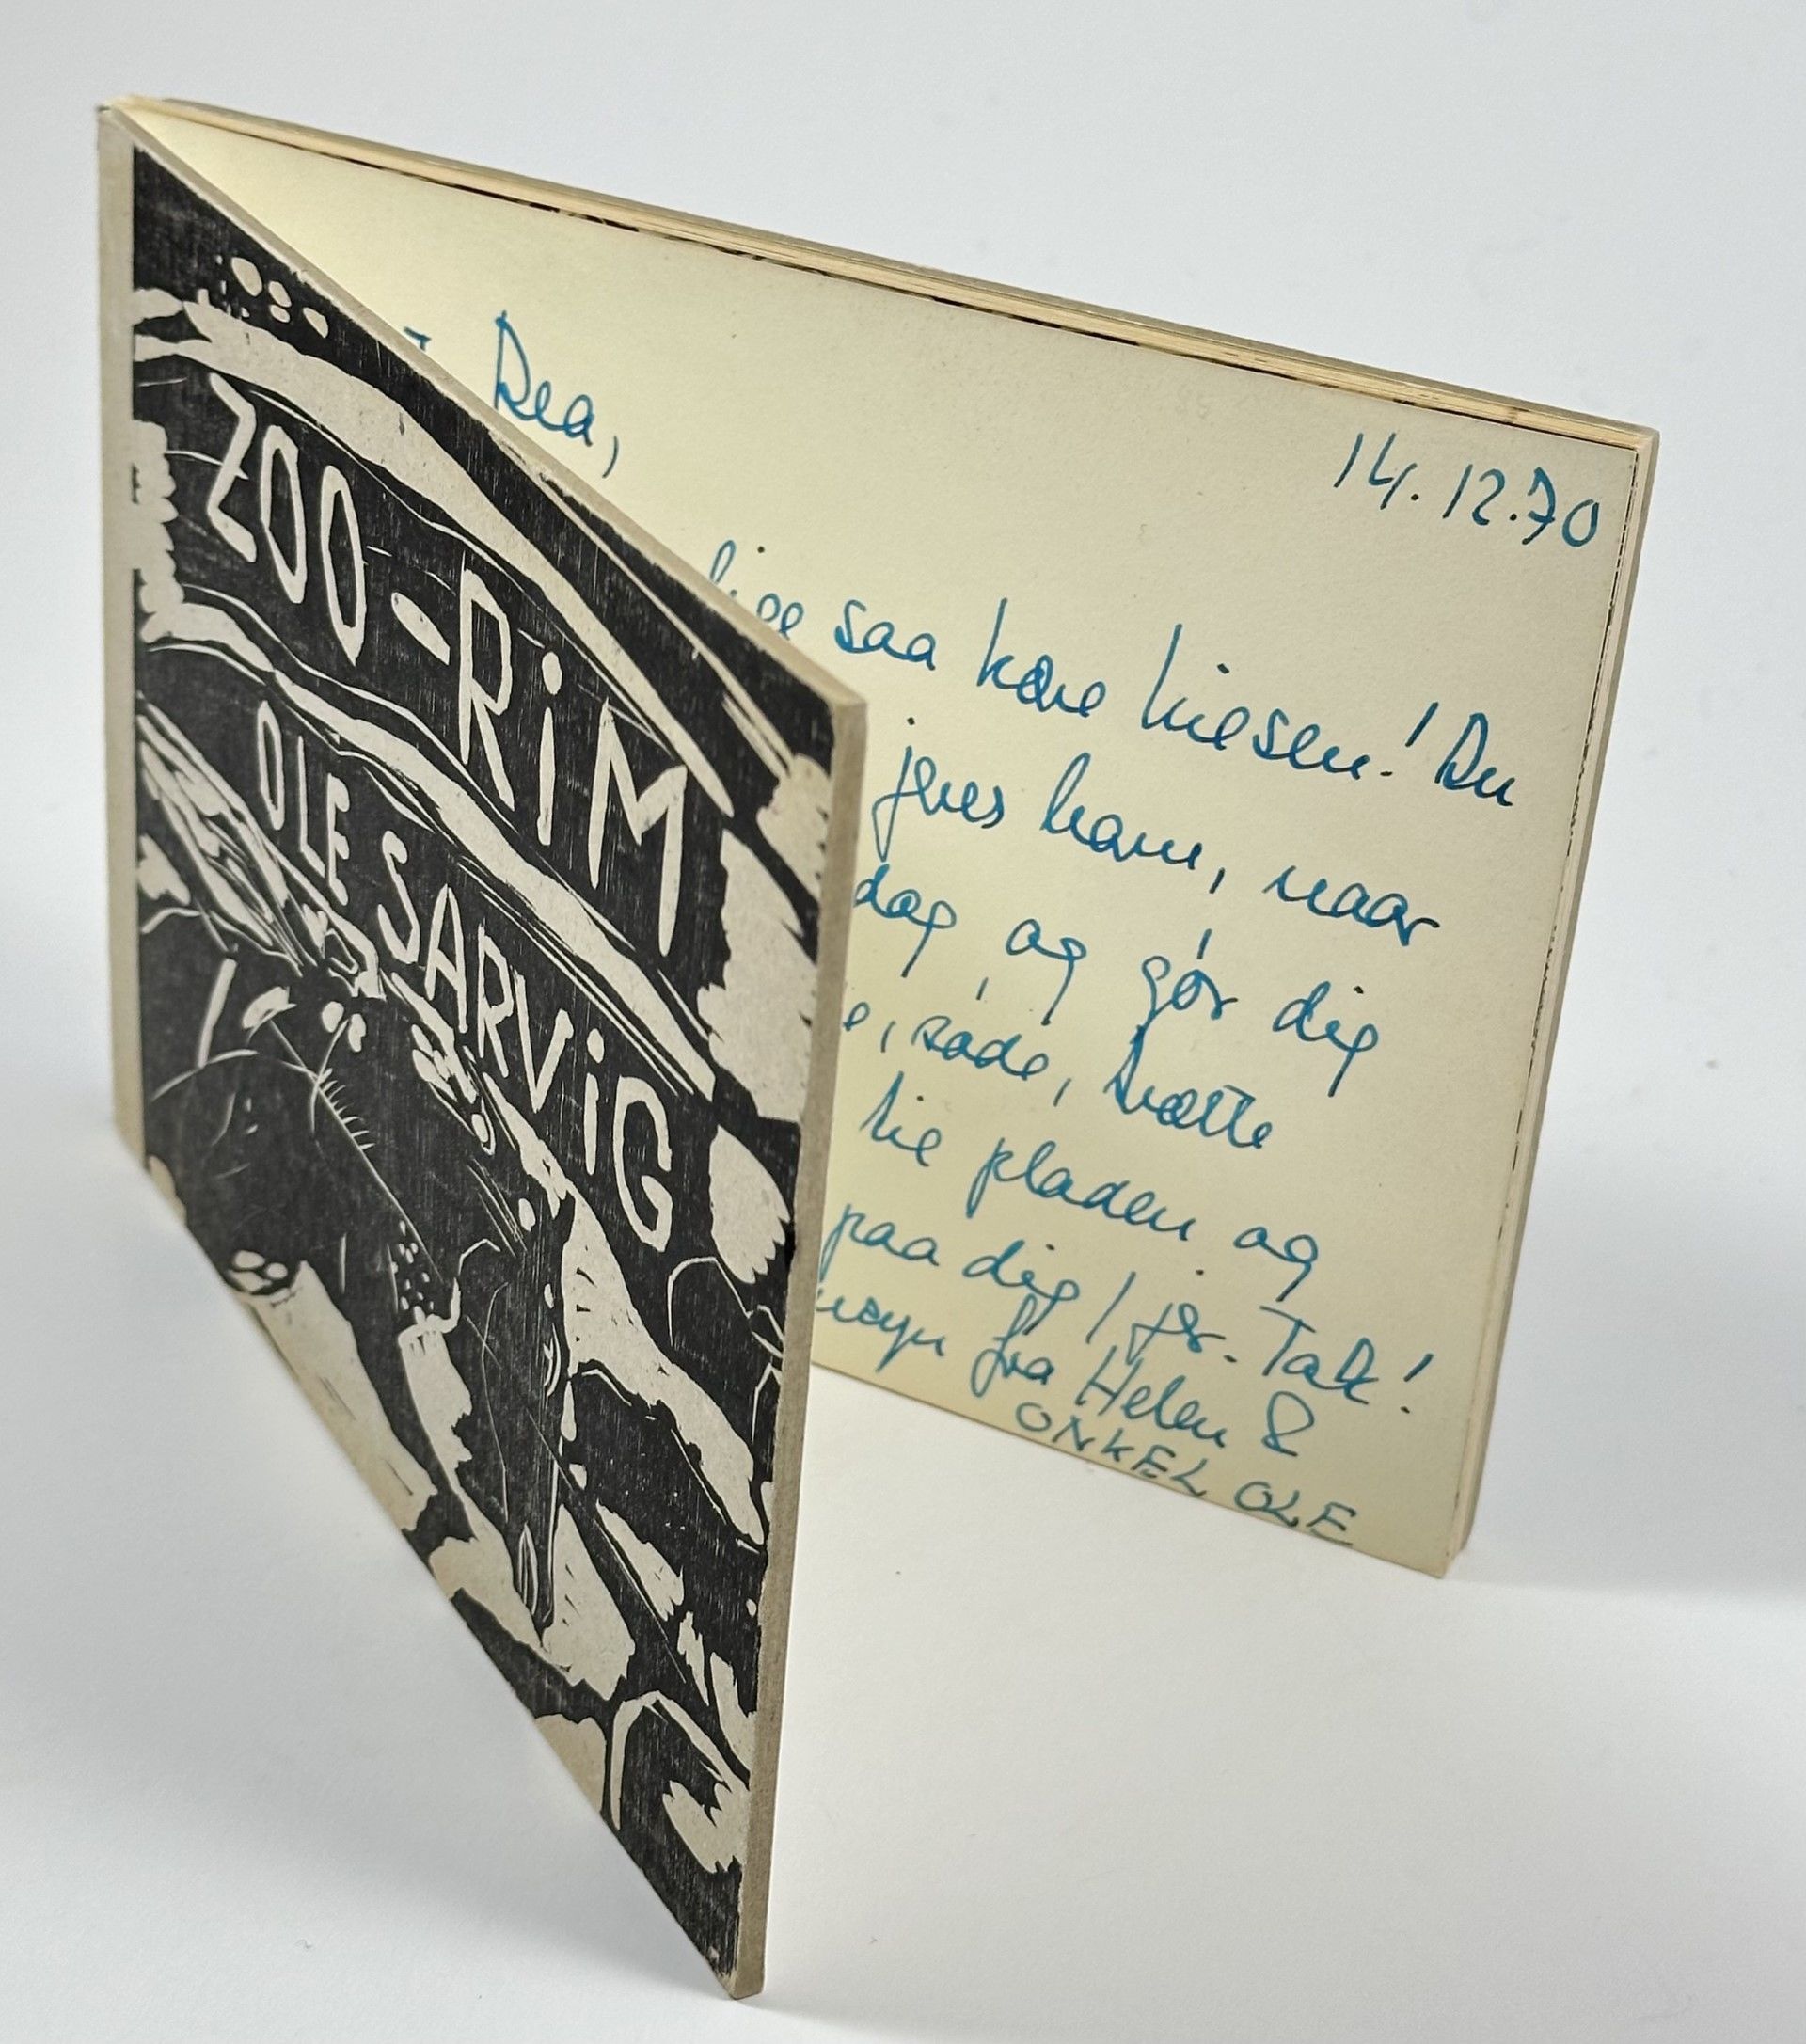 ZOO-RiM
OLE SARViG
Dea,
14.12.70
saa kære hilsen! Du
jeres ham, naar
dag og gør dig
søde, trætte
lie pladen og
paa dig / jer. Tak!
fra Helen &
ONKEL OLE